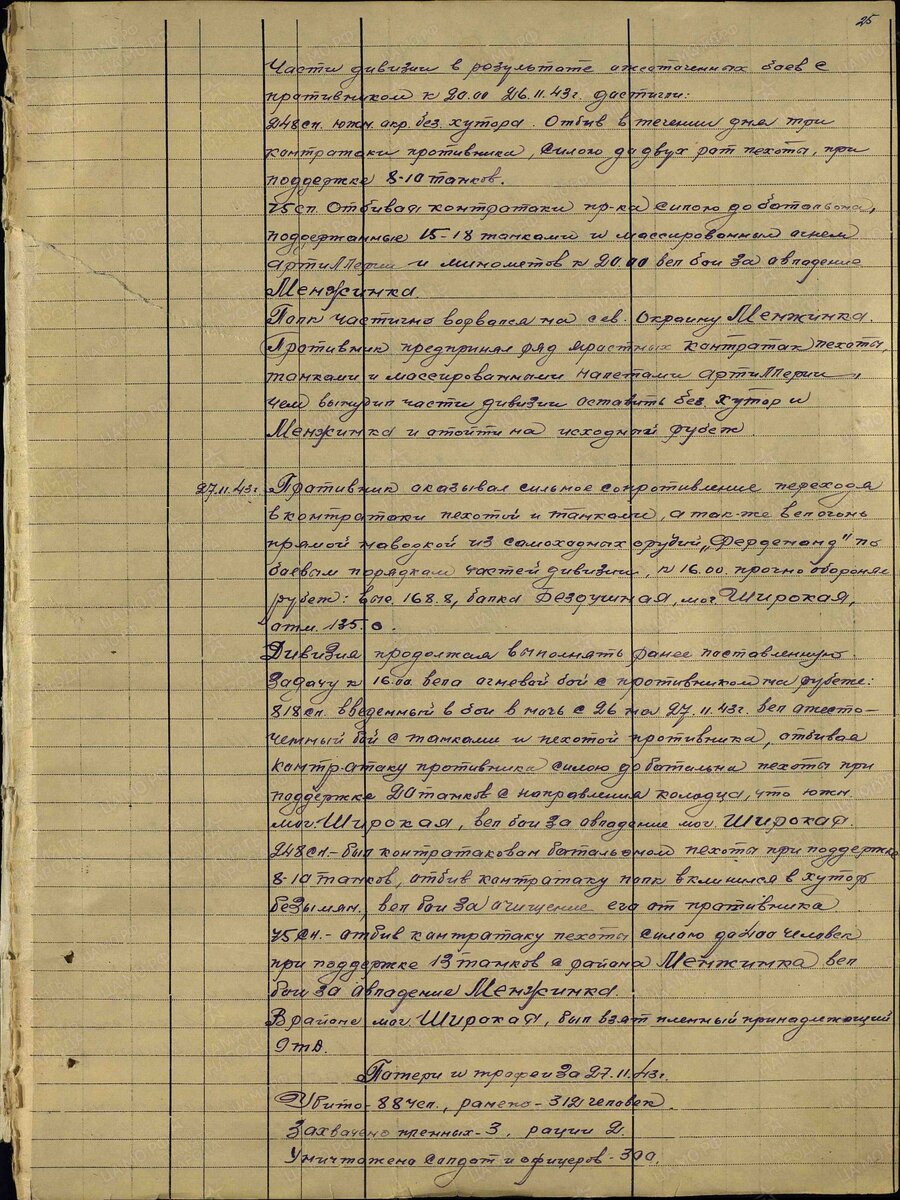 25
Части дивизии в результате ожесточенных боев с
противником к 20.00 26.11.43г. достигли:
248сп. южн. окр. без. хутора. Отбив в течении дня три
контратаки противника, силою до двух рот пехоты, при
поддержке 8-10 танков.
75сп. Отбивая контратаки пр-ка силою до батальона,
поддержанные 15-18 танками и массированным огнем
артиллерии и минометов к 20.00 вел бои за овладение
Менжинка.
Полк частично ворвался на сев. Окраину Менжинка.
Противник предпринял ряд яростных контратак пехоты,
танками и массированными налетами артиллерии,
чем вынудил части дивизии оставить без. хутор и
Менжинка и отойти на исходный рубеж.
27.11.43г. Противник оказывал сильное сопротивление переходя
в контратаки пехотой и танками, а так-же вел огонь
прямой наводкой из самоходных орудий „Ферденанд" по
боевым порядкам частей дивизии, к 16.00 прочно оборонял
рубеж: выс. 168.8, балка Бездушная, мог. Широкая,
отм. 135.0.
Дивизия продолжая выполнять ранее поставленную
задачу к 16.00 вела огневой бой с противником на рубеже:
818сп. введенный в бой в ночь с 26 на 27.11.43г. вел ожесто-
ченный бой с танками и пехотой противника, отбивая
контр-атаку противника силою до батальна пехоты при
поддержке 20 танков с направления колодца, что южн.
мог. Широкая, вел бои за овладение мог. Широкая.
248сп.- был контратакован батальоном пехоты при поддержке
8-10 танков, отбив контратаку полк вклинился в хутор
безымян., вел бои за очищение его от противника
75сп.- отбив контратаку пехоты силою до 200 человек
при поддержке 13 танков с района Менжинка вел
бои за овладение Менжинка.
В районе мог. Широкая, был взят пленный принадлежащий
9тд.
Потери и трофеи за 27.11.43г.
Убито- 88 чел., ранено- 312 человек.
Захвачено пленных- 3, рации 2.
Уничтожено солдат и офицеров- 300.